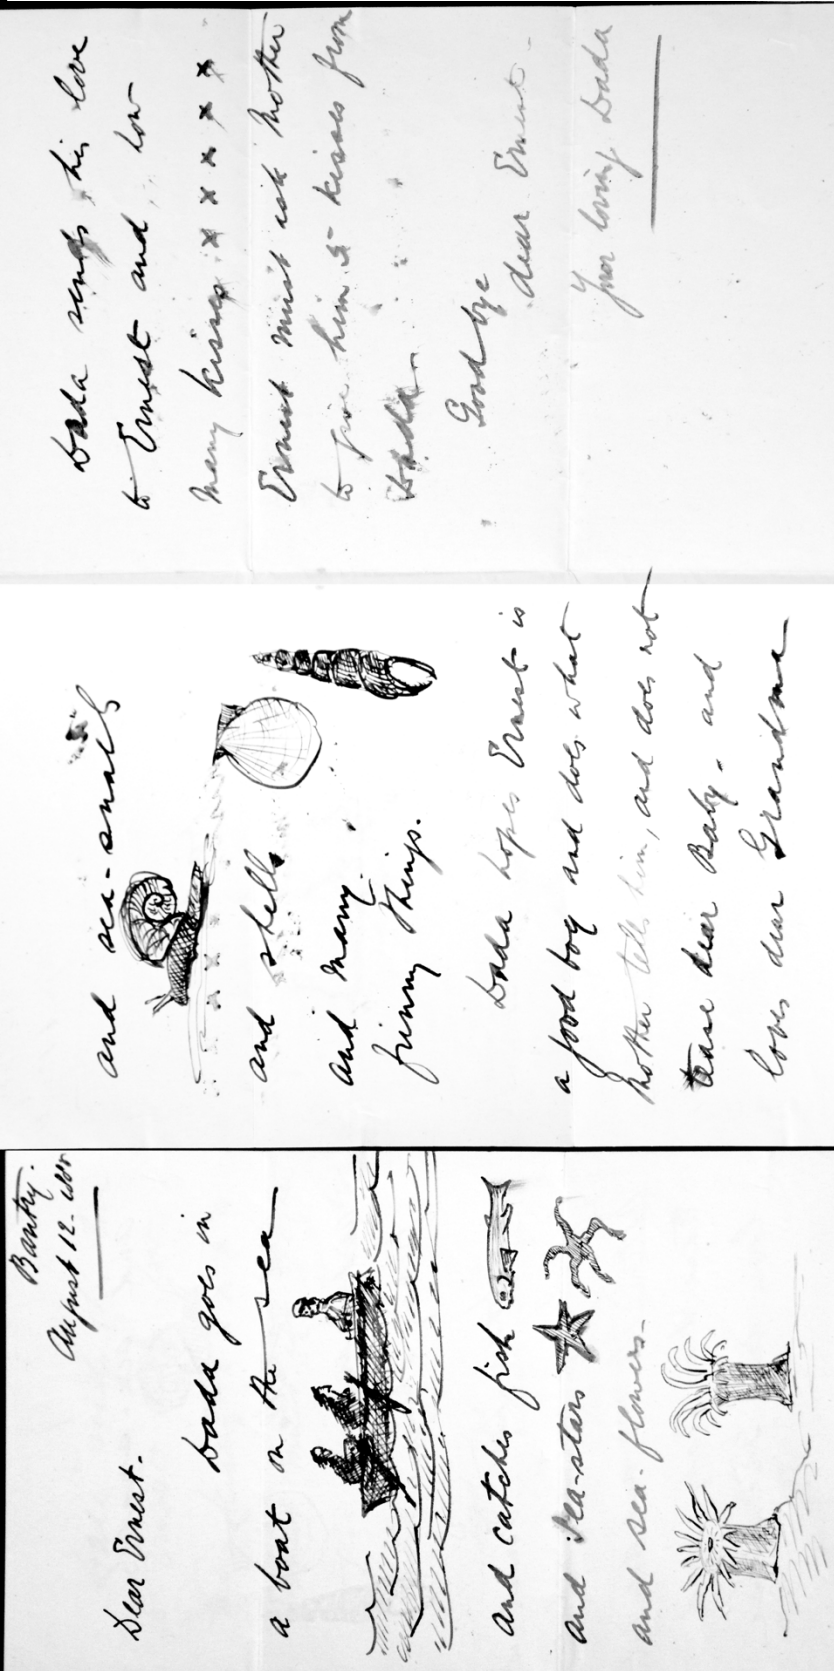 Bantry.
August 12.
Dear Ernest.
Dada goes in
a boat on the sea
and catches fish
and sea-stars
and sea-flowers-
and sea-snails
and shells
and many
funny things.
Dada hopes Ernest is
a good boy and does what
Mother tells him, and does not
tease dear Baby- and
loves dear Grandma
Dada sends his love
to Ernest and, how
many kisses x x x x x
Ernest must ask Mother
to give him 5 kisses from
Dada
Good bye
dear Ernest-
Your loving Dada